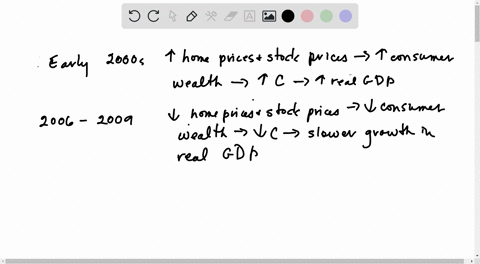 Early 2000s ↑ home prices + stock prices → ↑ consumer
wealth → ↑ C → ↑ real GDP
2006 - 2009 ↓ home prices + stock prices → ↓ consumer
wealth → ↓ C → slower growth in
real GDP